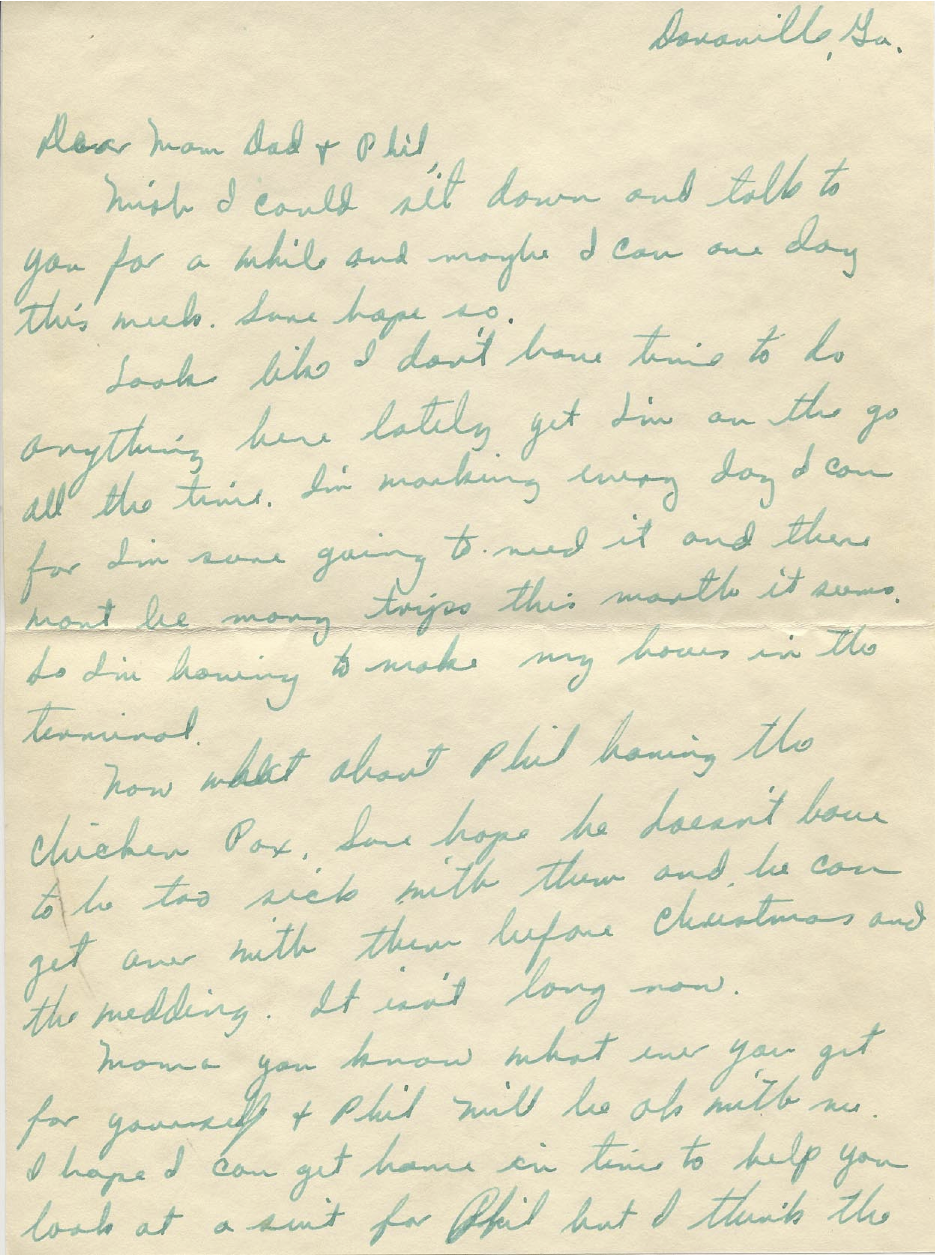 Doraville, Ga.
Dear Mom Dad + Phil,
Wish I could sit down and talk to
you for a while and maybe I can one day
this week. Sure hope so.
Looks like I don't have time to do
anything here lately yet I'm on the go
all the time. I'm working every day I can
for I'm sure going to need it and there
wont be many trips this month it seems.
So I'm having to make my hours in the
terminal.
Now what about Phil having the
Chicken Pox. Sure hope he doesn't have
to be too sick with them and he can
get over with them before Christmas and
the wedding. It isn't long now.
Moma you know what ever you get
for yourself + Phil will be ok with me.
I hope I can get home in time to help you
look at a suit for Phil but I think the